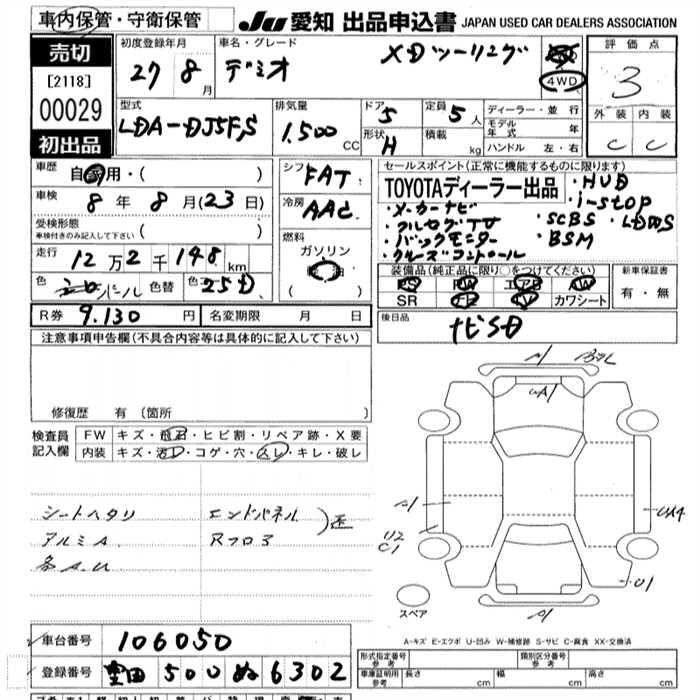 車内保管・守衛保管
JU 愛知 出品申込書 JAPAN USED CAR DEALERS ASSOCIATION
売切
[2118]
00029
初出品
初度登録年月
27 8月
車名・グレード
デミオ XDツーリング
4WD
評価点
3
外装 内装
C C
型式
LDA-DJ5FS
排気量
1.500 CC
ドア 5
形状 H
定員 5人
積載 kg
ディーラー・並行
モデル年式 年
ハンドル 左・右
車歴 自家用・( )
車検 8年8月(23日)
受検形態
車検付きのみ記入して下さい ( )
走行 12万2千148km
色 パール 色替 色コ 25D
シフト FAT
冷房 AAC
燃料
ガソリン
( )
セールスポイント(正常に機能するものに限ります)
TOYOTAディーラー出品
・HUD
・i-stop
・メーカーナビ
・フルセグTV
・SCBS ・LDWS
・バックモニター
・BSM
・クルーズコントロール
装備品(純正品に限り○をつけてください)
PS PW エアB AW
SR ナビ TV カワシート
新車保証書
有・無
R券 9.130円 名変期限 月 日
後日品
ナビSD
注意事項申告欄(不具合内容等は具体的に記入して下さい)
修復歴 有 [箇所 ]
検査員
記入欄
FW キズ・飛石・ヒビ割・リペア跡・X要
内装 キズ・汚れ・コゲ・穴・スレ・キレ・破レ
シートヘタリ エンドパネル
アルミA Rフロア
各A.U
A
U2
C1
U1
スペア
A-キズ E-エクボ U-凹み W-補修跡 S-サビ C-腐食 XX-交換済
車台番号 106050
登録番号 豊田 500 ぬ 6302
形式指定番号
参考
類別区分番号
参考
車庫証明用
参考
長さ cm 幅 cm 高さ cm